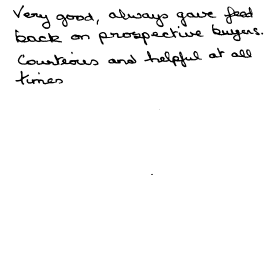 Very good, always gave feed
back on prospective buyers.
Courteous and helpful at all
times